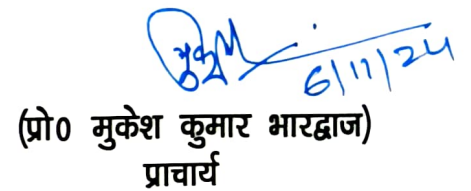 मुकेश
6/11/24
(प्रो0 मुकेश कुमार भारद्वाज)
प्राचार्य